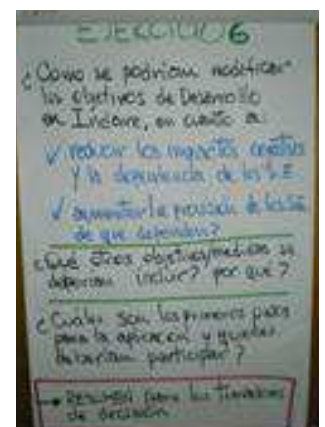 EJERCICIO 6
¿Como se podrian modificar
los objetivos de Desarrollo
en Indare, en cuanto a:
✓ reducir los impactos
y la dependencia de los S.E
✓ aumentar la provision de los SE
de que dependen?
¿Qué otros objetivos/medidas se
deberian incluir? por qué?
¿Cuales son los primeros pasos
para la aplicacion y quienes
deberian participar?
→ RESUMEN para los Tomadores
de decisión